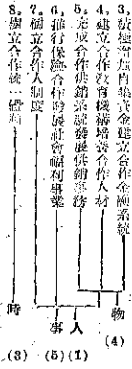 3、積極籌措自集資金建立合作金融系統
4、建立合作教育機構培養合作人材
5、完成合作供銷業務發展供銷事務
6、推行保險合作發展社會福利事業
7、樹立合作人制度
8、樹立合作統一體系
物
(4)
人
(1)
事
(5)
時
(3)